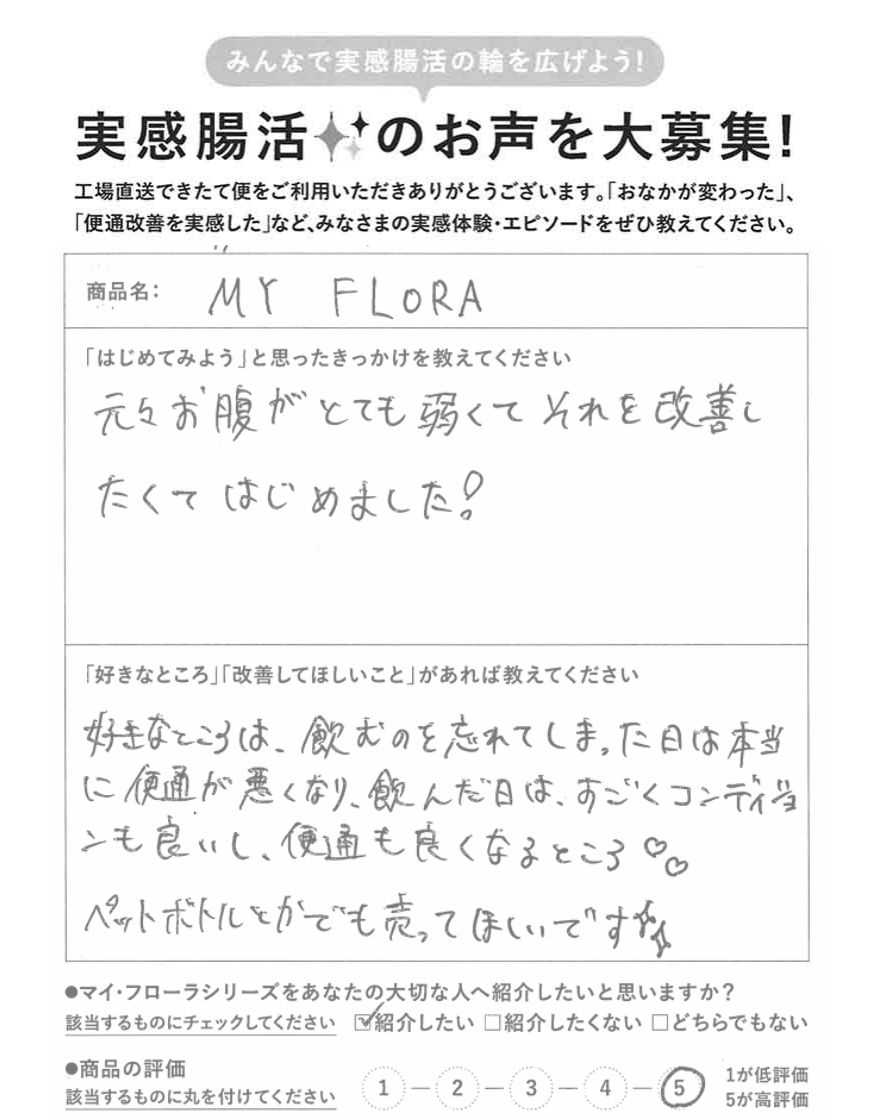 みんなで実感腸活の輪を広げよう!
実感腸活のお声を大募集!
工場直送できたて便をご利用いただきありがとうございます。「おなかが変わった」、
「便通改善を実感した」など、みなさまの実感体験・エピソードをぜひ教えてください。
商品名： MY FLORA
「はじめてみよう」と思ったきっかけを教えてください
元々お腹がとても弱くてそれを改善し
たくてはじめました!
「好きなところ」「改善してほしいこと」があれば教えてください
好きなところは、飲むのを忘れてしまった日は本当
に便通が悪くなり、飲んだ日は、すごくコンディショ
ンも良いし、便通も良くなるところ♡♡
ペットボトルとかでも売ってほしいです
●マイ・フローラシリーズをあなたの大切な人へ紹介したいと思いますか?
該当するものにチェックしてください ☑紹介したい □紹介したくない □どちらでもない
●商品の評価
該当するものに丸を付けてください 1 — 2 — 3 — 4 — 5
1が低評価
5が高評価